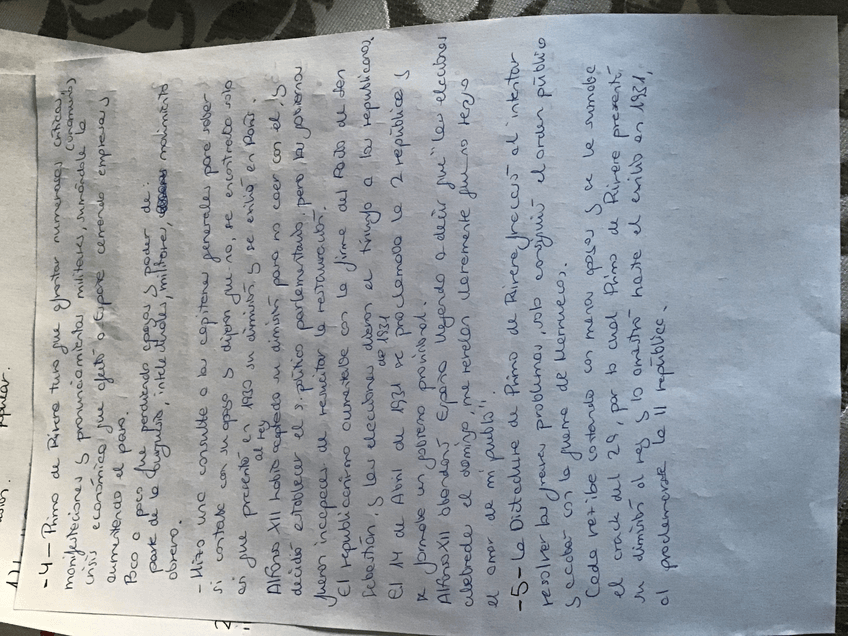 -4- Primo de Rivera tuvo que afrontar numerosas críticas,
manifestaciones y pronunciamientos militares, sumándole la
crisis económica que afectó a España cerrando empresas y
aumentando el paro.
Poco a poco fue perdiendo apoyos y poder de:
parte de la burguesía, intelectuales, militares, movimiento
obrero.
- Hizo una consulta a los capitanes generales para saber
si contaba con su apoyo y dijeron que no, se encontraba solo
así que presentó en 1930 su dimisión y se exilió en París.
al rey
Alfonso XII había aceptado su dimisión para no caer con el y
decidió establecer el s. político parlamentario, pero los gobiernos
fueron incapaces de resucitar la restauración.
El republicanismo aumentaba con la firma del Pacto de San
Sebastián y las elecciones dieron el triunfo a los republicanos.
de 1931
El 14 de Abril de 1931 se proclamaba la 2 república y
se formaba un gobierno provisional.
Alfonso XII abandonó España llegando a decir que "las elecciones
celebradas el domingo, me revelan claramente que no tengo
el amor de mi pueblo".
-5- La Dictadura de Primo de Rivera fracasó al intentar
resolver los graves problemas, solo consiguió el orden público
y acabar con la guerra de Marruecos.
Cada vez iba contando con menos apoyos y se le sumaba
el crack del 29, por lo cual Primo de Rivera presentó
su dimisión al rey y lo arrastró hasta el exilio en 1931,
al proclamarse la II república.
popular.